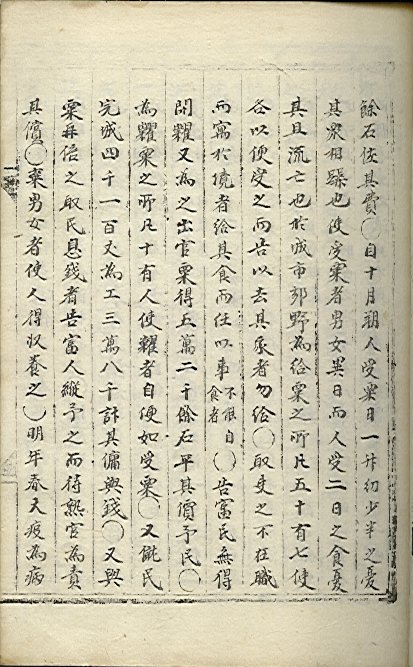 餘石佐其費○自十月朔人受粟日一升幼少半之憂
其衆相蹂也使受粟者男女異日而人受二日之食憂
其且流亡也於城市郊野為給粟之所凡五十有七使
各以便受之而告以去其家者勿給○取吏之不在職
而寓於境者給其食而任以事不能自食者○告富民無得
閉糶又為之出官粟得五萬二千餘石平其價予民○
為糶粟之所凡十有八使糶者自便如受粟○又僦民
完城四千一百丈為工三萬八千計其傭與錢○又與
粟再倍之取民息錢者告富人縱予之而待熟官為責
其償○棄男女者使人得收養之○明年春大疫為病